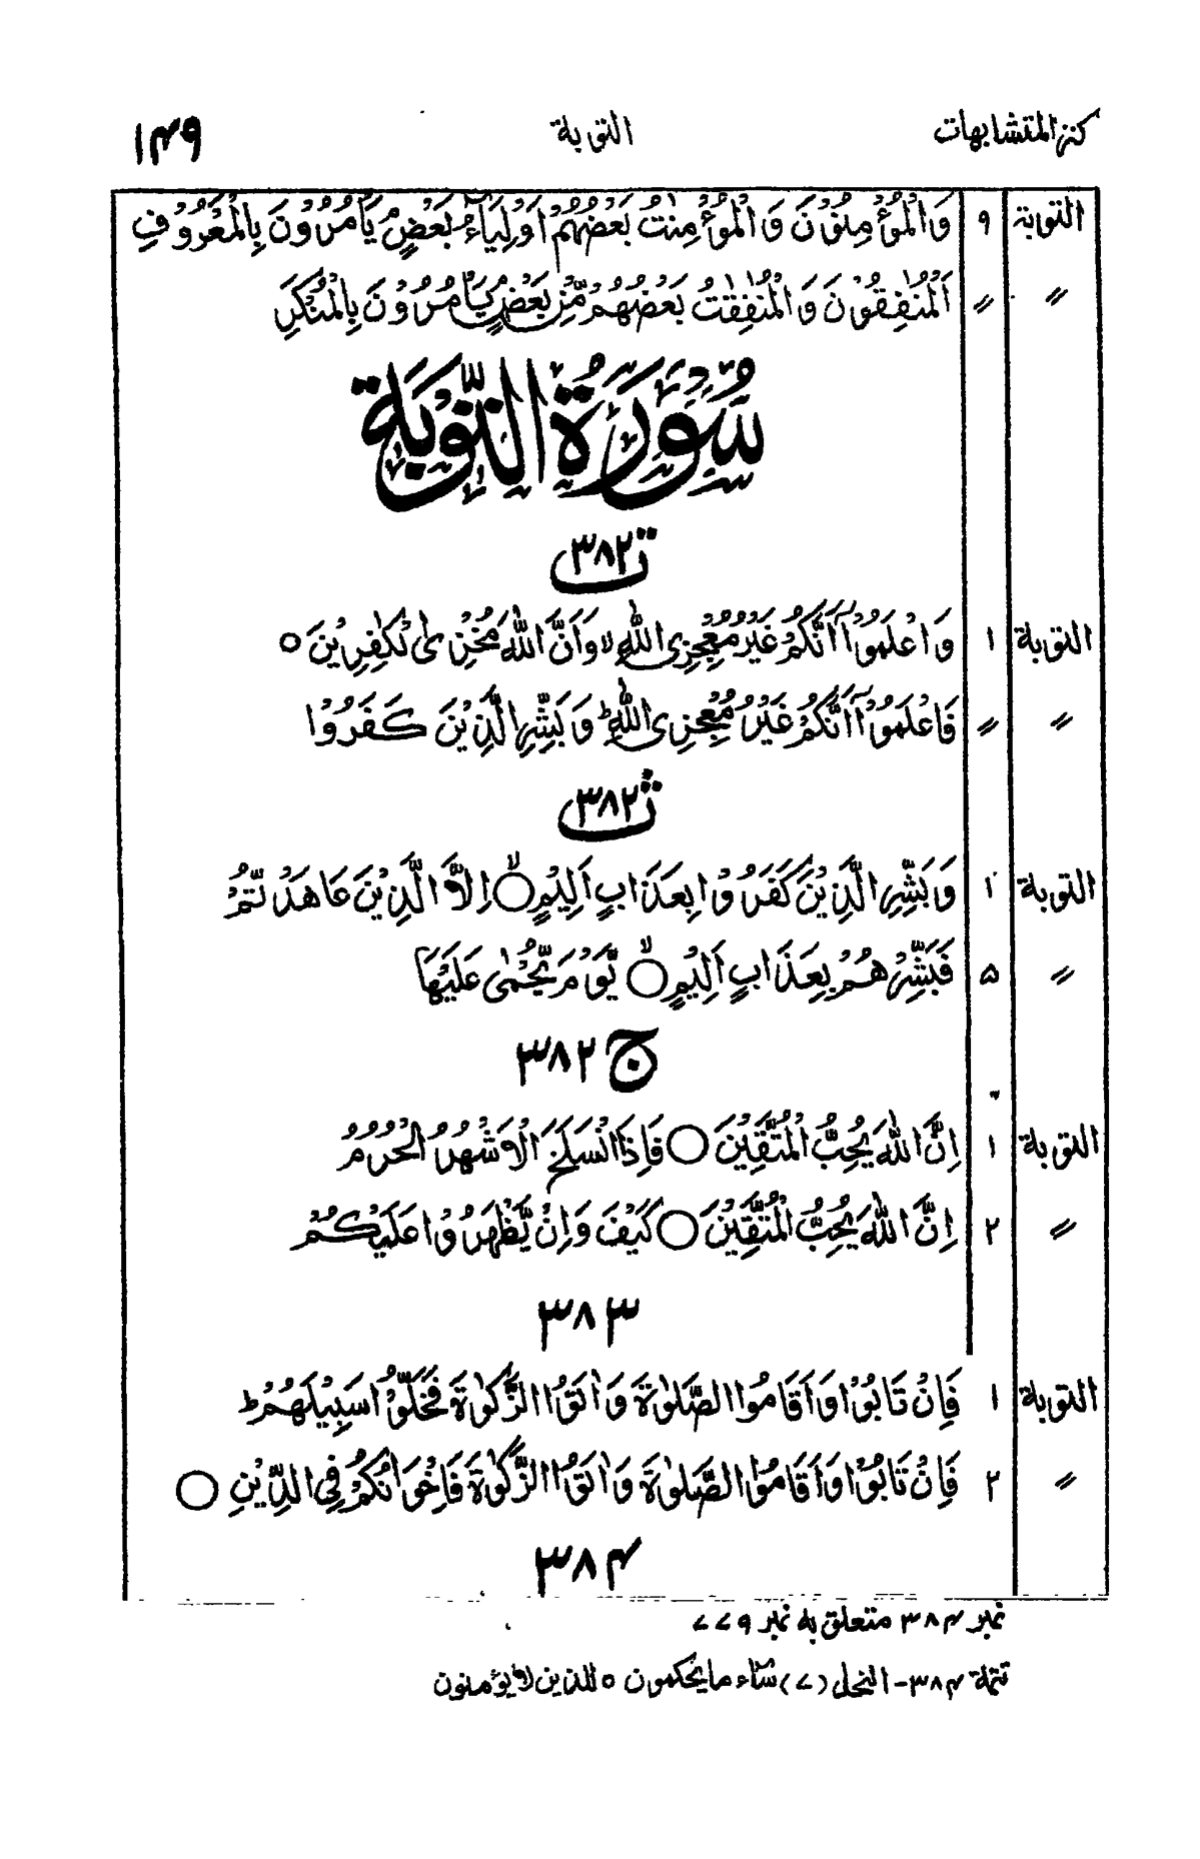 كنز المتشابهات التوبة ۱۴۹
التوبة ۹ وَالْمُؤْمِنُوْنَ وَالْمُؤْمِنٰتُ بَعْضُهُمْ اَوْلِيَآءُ بَعْضٍ يَاْمُرُوْنَ بِالْمَعْرُوْفِ
〃 〃 اَلْمُنٰفِقُوْنَ وَالْمُنٰفِقٰتُ بَعْضُهُمْ مِّنْ بَعْضٍ يَاْمُرُوْنَ بِالْمُنْكَرِ
سُوْرَةُ التَّوْبَةِ
ت ۳۸۲
التوبة ۱ وَاعْلَمُوْٓا اَنَّكُمْ غَيْرُ مُعْجِزِى اللّٰهِ لا وَاَنَّ اللّٰهَ مُخْزِى الْكٰفِرِيْنَ ○
〃 〃 فَاعْلَمُوْٓا اَنَّكُمْ غَيْرُ مُعْجِزِى اللّٰهِ ط وَبَشِّرِ الَّذِيْنَ كَفَرُوْا
ث ۳۸۲
التوبة ۱ وَبَشِّرِ الَّذِيْنَ كَفَرُوْا بِعَذَابٍ اَلِيْمٍ ○ لا اِلَّا الَّذِيْنَ عَاهَدْتُّمْ
〃 ۵ فَبَشِّرْهُمْ بِعَذَابٍ اَلِيْمٍ ○ لا يَّوْمَ يُحْمٰى عَلَيْهَا
ج ۳۸۲
التوبة ۱ اِنَّ اللّٰهَ يُحِبُّ الْمُتَّقِيْنَ ○ فَاِذَا انْسَلَخَ الْاَشْهُرُ الْحُرُمُ
〃 ۲ اِنَّ اللّٰهَ يُحِبُّ الْمُتَّقِيْنَ ○ كَيْفَ وَاِنْ يَّظْهَرُوْا عَلَيْكُمْ
۳۸۳
التوبة ۱ فَاِنْ تَابُوْا وَاَقَامُوا الصَّلٰوةَ وَاٰتَوُا الزَّكٰوةَ فَخَلُّوْا سَبِيْلَهُمْ ط
〃 ۲ فَاِنْ تَابُوْا وَاَقَامُوا الصَّلٰوةَ وَاٰتَوُا الزَّكٰوةَ فَاِخْوَانُكُمْ فِى الدِّيْنِ ○
۳۸۴
نمبر ۳۸۴ متعلق به نمبر ۷۷۹
تتمة ۳۸۴- النحل (۷) سآء مايحكمون ○ للذين لايؤمنون